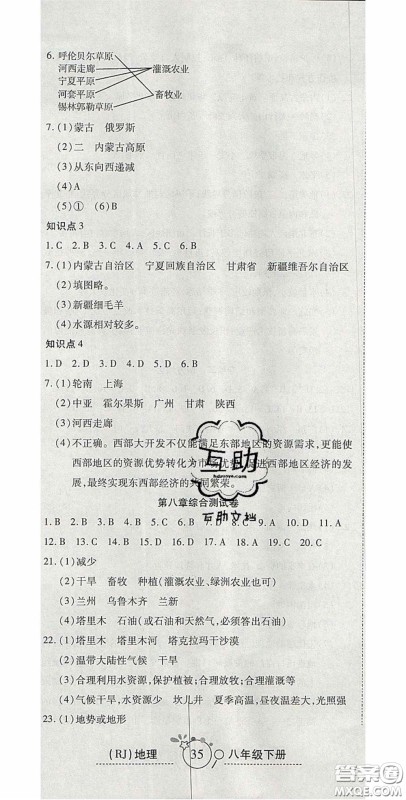 6. 呼伦贝尔草原
河西走廊
灌溉农业
宁夏平原
河套平原
畜牧业
锡林郭勒草原
7. (1)蒙古 俄罗斯
(2)二 内蒙古高原
(3)从东向西递减
(4)A
(5)① (6)B
知识点3
1. C 2. B 3. C 4. A 5. C 6. B
7. (1)内蒙古自治区 宁夏回族自治区 甘肃省 新疆维吾尔自治区
(2)填图略。
(3)新疆细毛羊
(4)水源相对较多。
知识点4
1. D 2. D 3. D 4. A 5. B 6. D
7. (1)轮南 上海
(2)中亚 霍尔果斯 广州 甘肃 陕西
(3)河西走廊
(4)不正确。西部大开发不仅能满足东部地区的资源需求，更能使
西部地区的资源优势转化为市场优势，促进西部地区经济的发
展，最终实现东西部经济的共同繁荣。
互助
互助文档
第八章综合测试卷
1. B 2. C 3. D 4. A 5. C 6. B 7. D 8. C 9. A 10. D 11. A
12. D 13. C 14. B 15. A 16. B 17. C 18. A 19. C 20. C
21. (1)减少
(2)干旱 畜牧 种植(灌溉农业、绿洲农业也可)
(3)兰州 乌鲁木齐 兰新
(4)塔里木 石油(或石油和天然气，必须答出石油)
22. (1)塔里木 塔里木河 塔克拉玛干沙漠
(2)温带大陆性气候 干旱
(3)合理利用水资源，保护植被，合理放牧等。
(4)气候干旱，水资源少 坎儿井 夏季高温，昼夜温差大，光照强
23. (1)地势或地形
(RJ)地理 35 八年级下册
答案圈
MXQE.COM